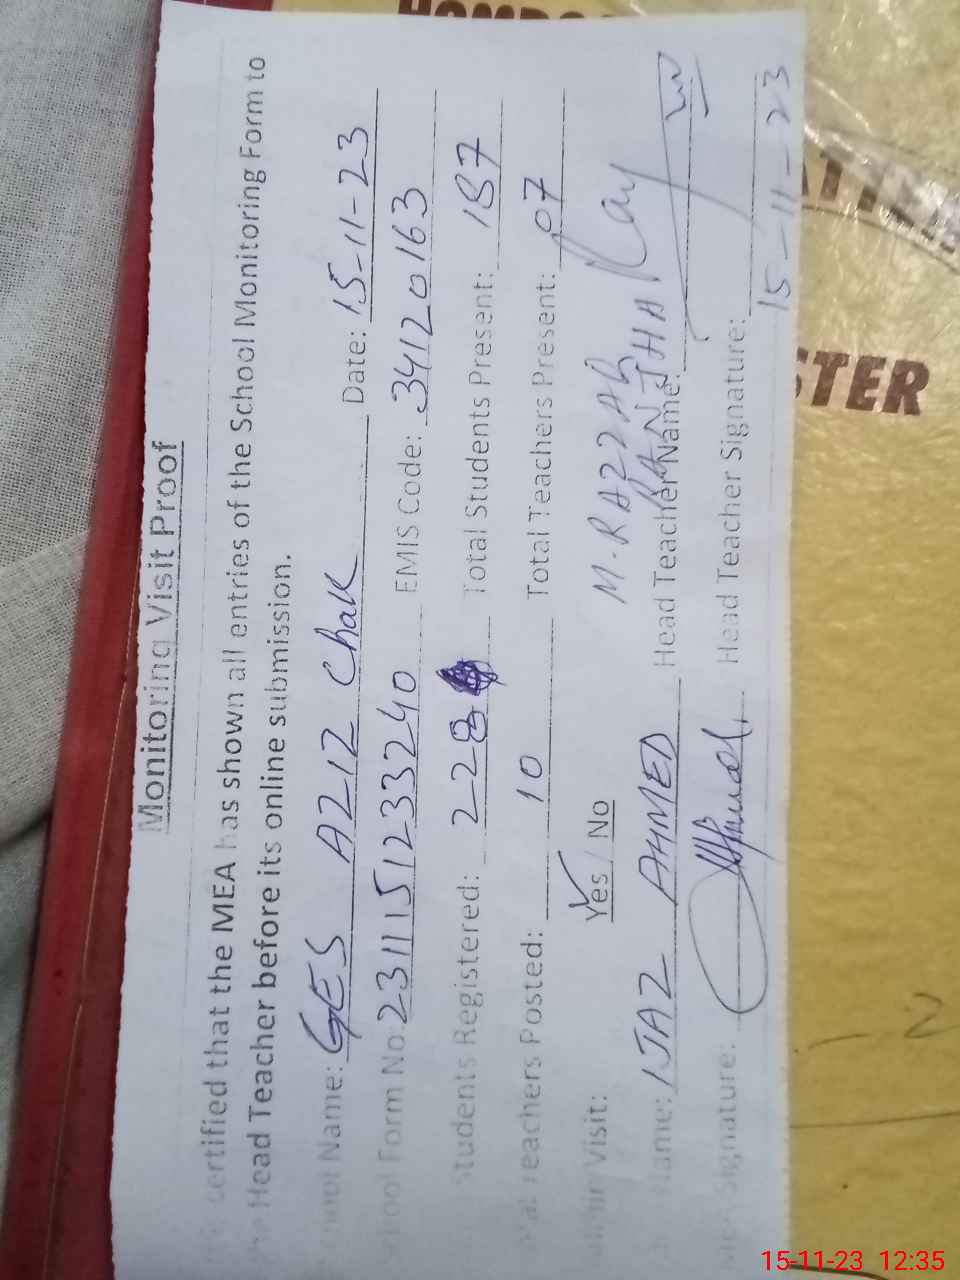 Monitoring Visit Proof
certified that the MEA has shown all entries of the School Monitoring Form to
Head Teacher before its online submission.
School Name: GES AZIZ Chak Date: 15-11-23
School Form No: 2311151233240 EMIS Code: 34120163
Students Registered: 228 Total Students Present: 187
Teachers Posted: 10 Total Teachers Present: 07
Visit: Yes / No
M. RAZZAQ RANJHA
Name: IJAZ AHMED Head Teacher Name:
Signature: Head Teacher Signature:
15-11-23
STER
15-11-23 12:35